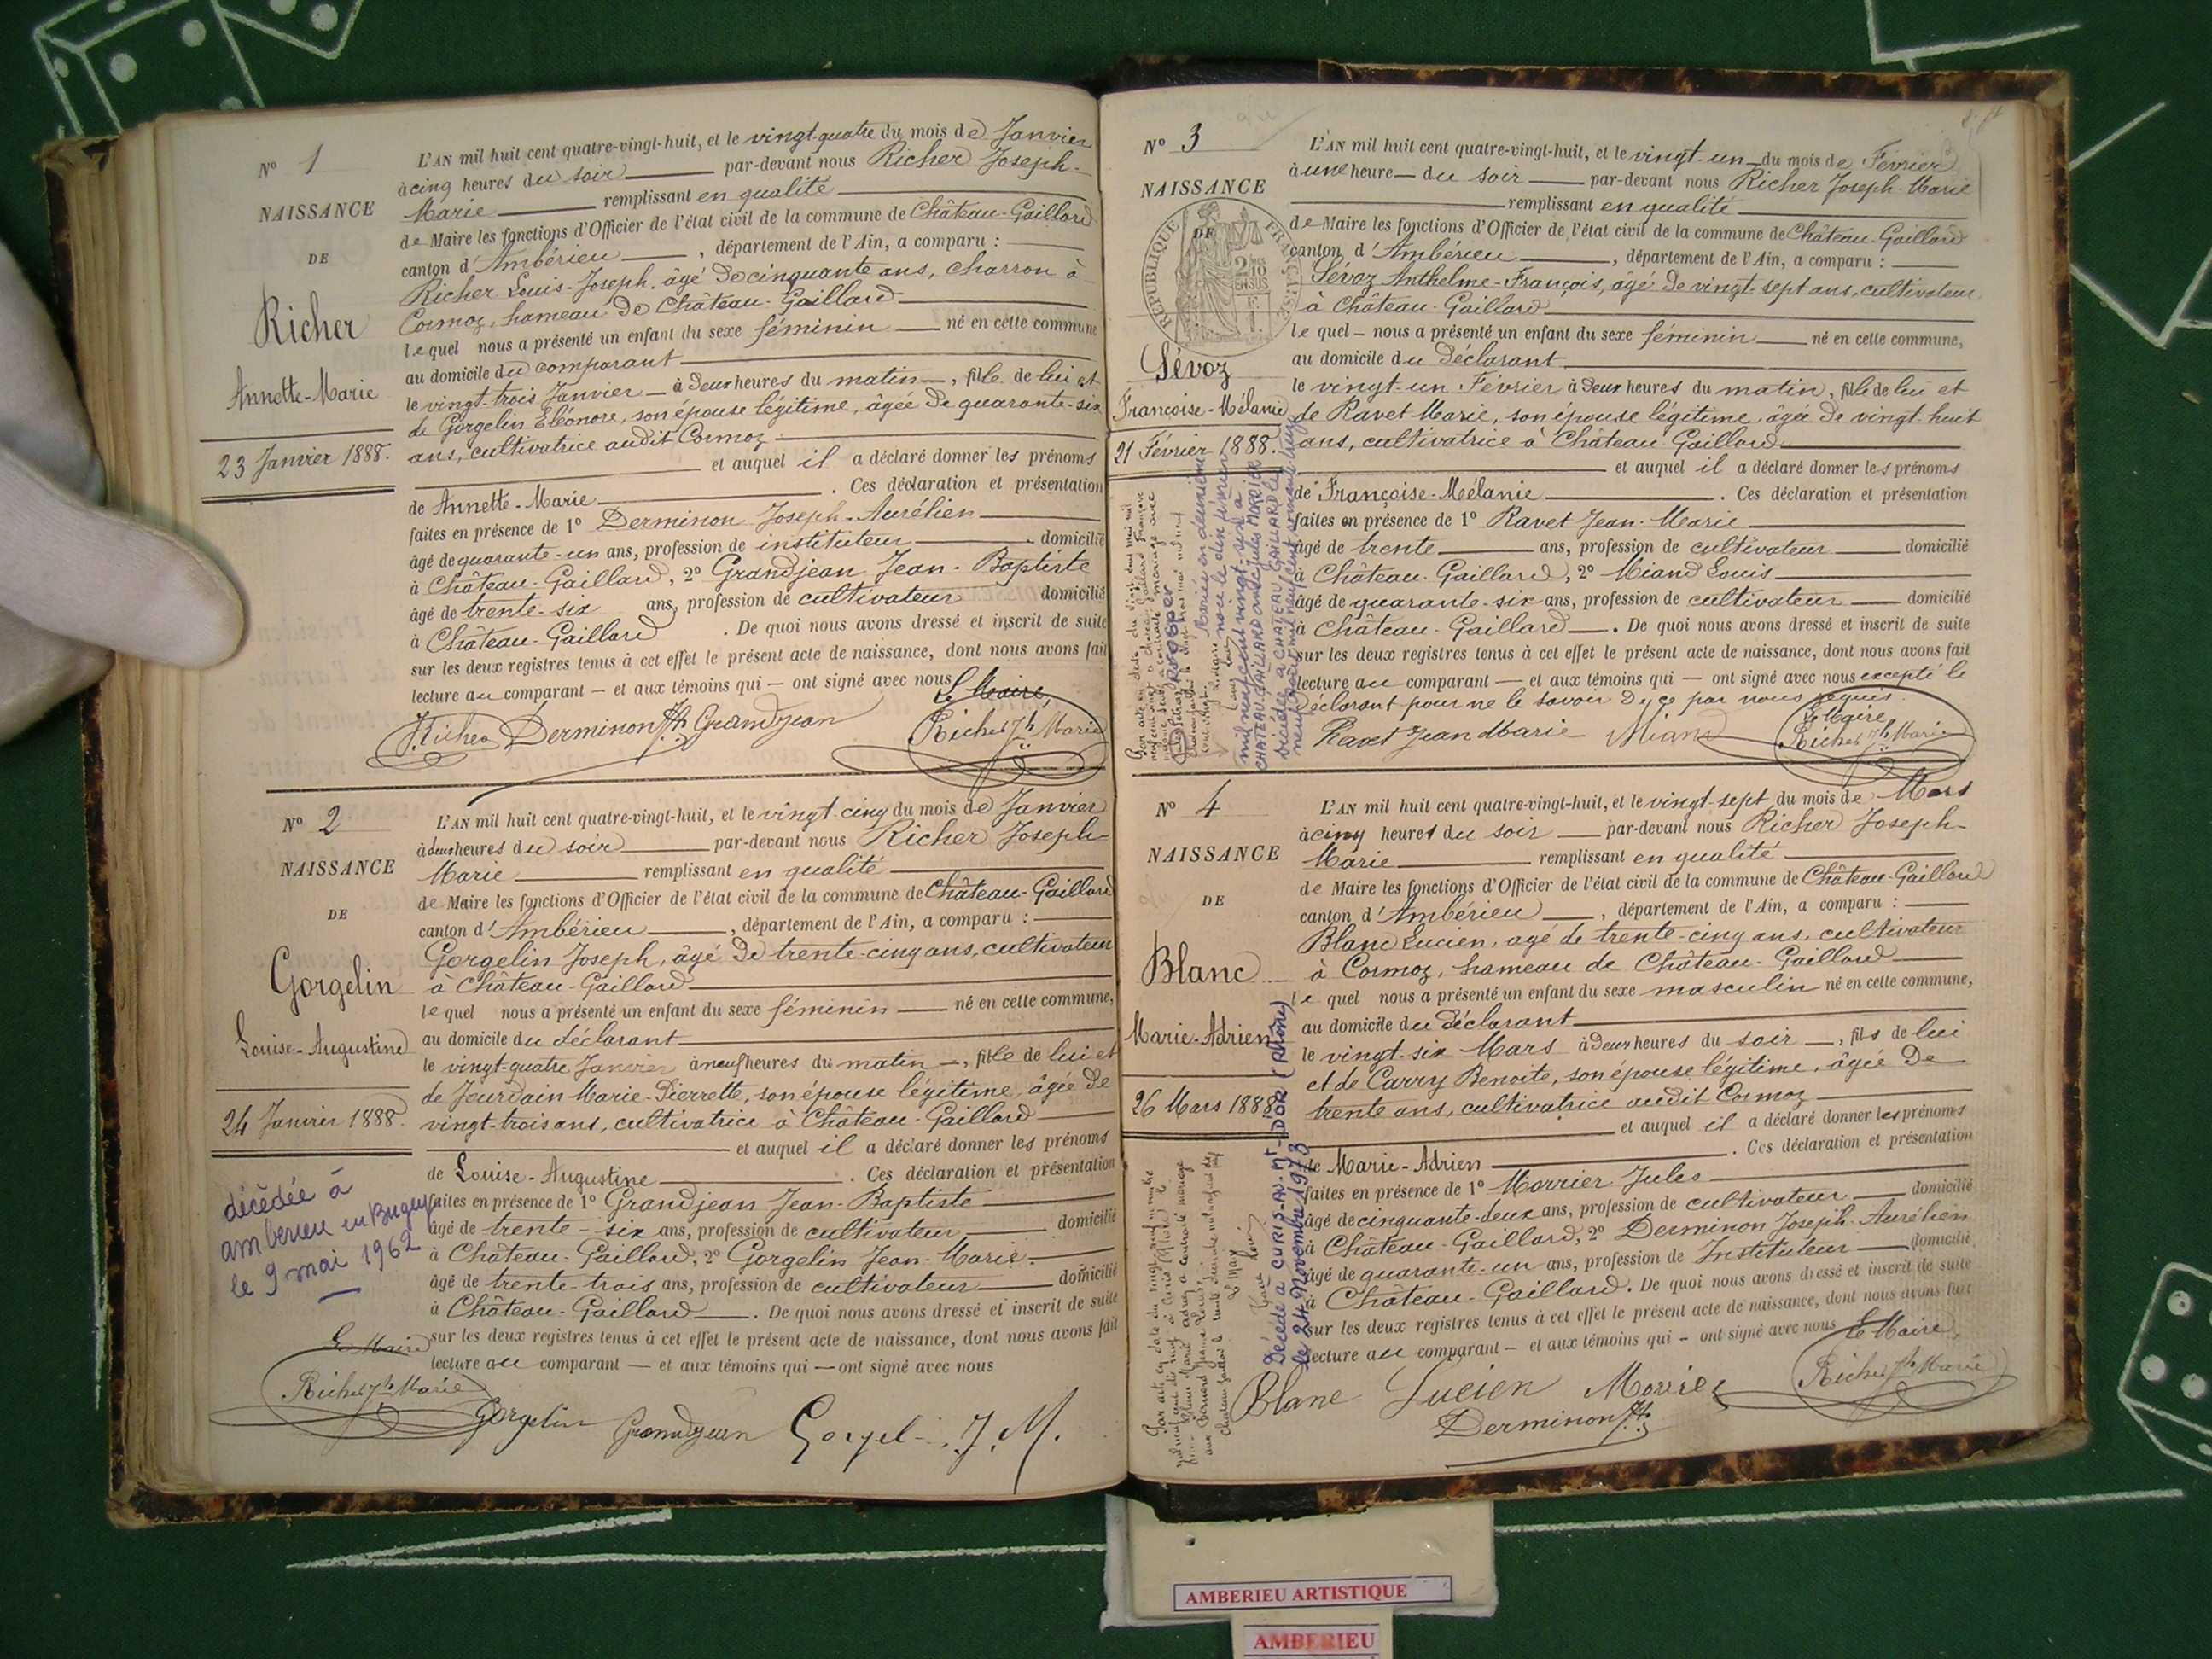 Nº 1
NAISSANCE
DE
Richer
Annette-Marie
23 Janvier 1888.
L'AN mil huit cent quatre-vingt-huit, et le vingt-quatre du mois de Janvier
à cinq heures du soir par-devant nous Richer Joseph-
Marie remplissant en qualité
de Maire les fonctions d'Officier de l'état civil de la commune de Château-Gaillard
canton d'Ambérieu, département de l'Ain, a comparu :
Richer Louis-Joseph, âgé de cinquante ans, charron à
Cormoz, hameau de Château-Gaillard
lequel nous a présenté un enfant du sexe féminin né en cette commune
au domicile du comparant
le vingt-trois Janvier à deux heures du matin, fille de lui et
de Gorgelin Eléonore, son épouse légitime, âgée de quarante-six
ans, cultivatrice audit Cormoz
et auquel il a déclaré donner les prénoms
de Annette-Marie. Ces déclaration et présentation
faites en présence de 1º Derminon Joseph-Aurélien
âgé de quarante-un ans, profession de instituteur domicilié
à Château-Gaillard, 2º Grandjean Jean-Baptiste
âgé de trente-six ans, profession de cultivateur domicilié
à Château-Gaillard. De quoi nous avons dressé et inscrit de suite
sur les deux registres tenus à cet effet le présent acte de naissance, dont nous avons fait
lecture au comparant — et aux témoins qui — ont signé avec nous
Le Maire,
Richer Derminon Grandjean Richer Jh Marie
Nº 2
NAISSANCE
DE
Gorgelin
Louise-Augustine
24 Janvier 1888.
décédée à
amberieu en Bugey
le 9 mai 1962
L'AN mil huit cent quatre-vingt-huit, et le vingt-cinq du mois de Janvier
à deux heures du soir par-devant nous Richer Joseph-
Marie remplissant en qualité
de Maire les fonctions d'Officier de l'état civil de la commune de Château-Gaillard
canton d'Ambérieu, département de l'Ain, a comparu :
Gorgelin Joseph, âgé de trente-cinq ans, cultivateur
à Château-Gaillard
lequel nous a présenté un enfant du sexe féminin né en cette commune,
au domicile du déclarant
le vingt-quatre Janvier à neuf heures du matin, fille de lui et
de Jourdain Marie-Pierrette, son épouse légitime, âgée de
vingt-trois ans, cultivatrice à Château-Gaillard
et auquel il a déclaré donner les prénoms
de Louise-Augustine. Ces déclaration et présentation
faites en présence de 1º Grandjean Jean-Baptiste
âgé de trente-six ans, profession de cultivateur domicilié
à Château-Gaillard, 2º Gorgelin Jean-Marie
âgé de trente-trois ans, profession de cultivateur domicilié
à Château-Gaillard. De quoi nous avons dressé et inscrit de suite
sur les deux registres tenus à cet effet le présent acte de naissance, dont nous avons fait
lecture au comparant — et aux témoins qui — ont signé avec nous
Le Maire
Richer Jh Marie
Gorgelin Grandjean Gorgel J. M.
Nº 3
NAISSANCE
DE
RÉPUBLIQUE FRANÇAISE
Sévoz
Françoise-Mélanie
21 Février 1888.
L'AN mil huit cent quatre-vingt-huit, et le vingt-un du mois de Février
à une heure du soir par-devant nous Richer Joseph-Marie
remplissant en qualité
de Maire les fonctions d'Officier de l'état civil de la commune de Château-Gaillard
canton d'Ambérieu, département de l'Ain, a comparu :
Sévoz Anthelme-François, âgé de vingt-sept ans, cultivateur
à Château-Gaillard
lequel — nous a présenté un enfant du sexe féminin né en cette commune,
au domicile du déclarant
le vingt-un Février à deux heures du matin, fille de lui et
de Ravet Marie, son épouse légitime, âgée de vingt-huit
ans, cultivatrice à Château-Gaillard
et auquel il a déclaré donner les prénoms
de Françoise-Mélanie. Ces déclaration et présentation
faites en présence de 1º Ravet Jean-Marie
âgé de trente ans, profession de cultivateur domicilié
à Château-Gaillard, 2º Miand Louis
âgé de quarante-six ans, profession de cultivateur domicilié
à Château-Gaillard. De quoi nous avons dressé et inscrit de suite
sur les deux registres tenus à cet effet le présent acte de naissance, dont nous avons fait
lecture au comparant — et aux témoins qui — ont signé avec nous excepté le
déclarant pour ne le savoir de ce par nous requis.
Le Maire
Ravet Jean Marie Miand Richer Jh Marie
Nº 4
NAISSANCE
DE
Blanc
Marie-Adrien
26 Mars 1888
Décédé à CURIS-AU-Mt-D'OR (Rhône)
le 24 Novembre 1973
L'AN mil huit cent quatre-vingt-huit, et le vingt-sept du mois de Mars
à cinq heures du soir par-devant nous Richer Joseph-
Marie remplissant en qualité
de Maire les fonctions d'Officier de l'état civil de la commune de Château-Gaillard
canton d'Ambérieu, département de l'Ain, a comparu :
Blanc Lucien, agé de trente-cinq ans, cultivateur
à Cormoz, hameau de Château-Gaillard
lequel nous a présenté un enfant du sexe masculin né en cette commune,
au domicile du déclarant
le vingt-six Mars à deux heures du soir, fils de lui
et de Carry Benoite, son épouse légitime, âgée de
trente ans, cultivatrice audit Cormoz
et auquel il a déclaré donner les prénoms
de Marie-Adrien. Ces déclaration et présentation
faites en présence de 1º Morrier Jules
âgé de cinquante-deux ans, profession de cultivateur domicilié
à Château-Gaillard, 2º Derminon Joseph-Aurélien
âgé de quarante-un ans, profession de Instituteur domicilié
à Château-Gaillard. De quoi nous avons dressé et inscrit de suite
sur les deux registres tenus à cet effet le présent acte de naissance, dont nous avons fait
lecture au comparant — et aux témoins qui — ont signé avec nous
Le Maire,
Blanc Lucien Morrier Richer Jh Marie
Derminon
AMBERIEU ARTISTIQUE
AMBERIEU